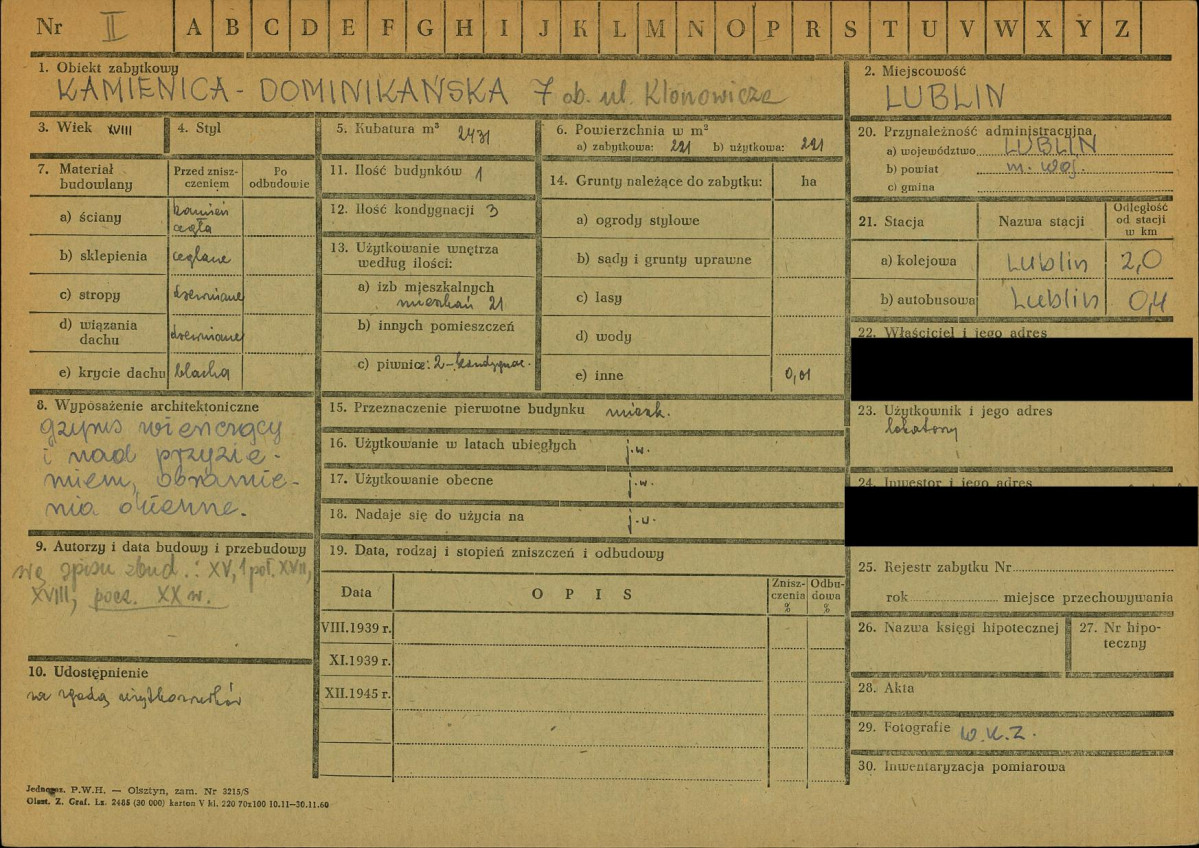 Nr II A B C D E F G H I J K L M N O P R S T U V W X Y Z
1. Obiekt zabytkowy
KAMIENICA - DOMINIKAŃSKA 7 ob. ul. Klonowicza
2. Miejscowość
LUBLIN
3. Wiek XVIII
4. Styl
5. Kubatura m³ 2431
6. Powierzchnia w m²
a) zabytkowa: 221 b) użytkowa: 221
7. Materiał budowlany
Przed zniszczeniem
Po odbudowie
a) ściany kamień
cegła
b) sklepienia ceglane
c) stropy drewniane
d) wiązania
dachu drewniane
e) krycie dachu blacha
8. Wyposażenie architektoniczne
gzyms wieńczący
i nad przyzie-
miem, obramie-
nia okienne.
9. Autorzy i data budowy i przebudowy
wg spisu zbud.: XV, 1 poł. XVII,
XVIII, pocz. XX w.
10. Udostępnienie
za zgodą użytkowników
11. Ilość budynków 1
12. Ilość kondygnacji 3
13. Użytkowanie wnętrza
według ilości:
a) izb mieszkalnych
mieszkań 21
b) innych pomieszczeń
c) piwnice: 2-kondygnac.
14. Grunty należące do zabytku: ha
a) ogrody stylowe
b) sady i grunty uprawne
c) lasy
d) wody
e) inne 0,01
15. Przeznaczenie pierwotne budynku mieszk.
16. Użytkowanie w latach ubiegłych j.w.
17. Użytkowanie obecne j.w.
18. Nadaje się do użycia na j.w.
19. Data, rodzaj i stopień zniszczeń i odbudowy
Data O P I S Znisz-
czenia
% Odbu-
dowa
%
VIII.1939 r.
XI.1939 r.
XII.1945 r.
20. Przynależność administracyjna
a) województwo LUBLIN
b) powiat m. woj.
c) gmina
21. Stacja Nazwa stacji Odległość
od stacji
w km
a) kolejowa Lublin 2,0
b) autobusowa Lublin 0,4
22. Właściciel i jego adres
23. Użytkownik i jego adres
lokatorzy
24. Inwestor i jego adres
25. Rejestr zabytku Nr
rok miejsce przechowywania
26. Nazwa księgi hipotecznej
27. Nr hipo-
teczny
28. Akta
29. Fotografie W.K.Z.
30. Inwentaryzacja pomiarowa
P.W.H. — Olsztyn, zam. Nr 3215/S
Olszt. Z. Graf. Lz. 2485 (30 000) karton V kl. 220 70x100 10.11—30.11.60